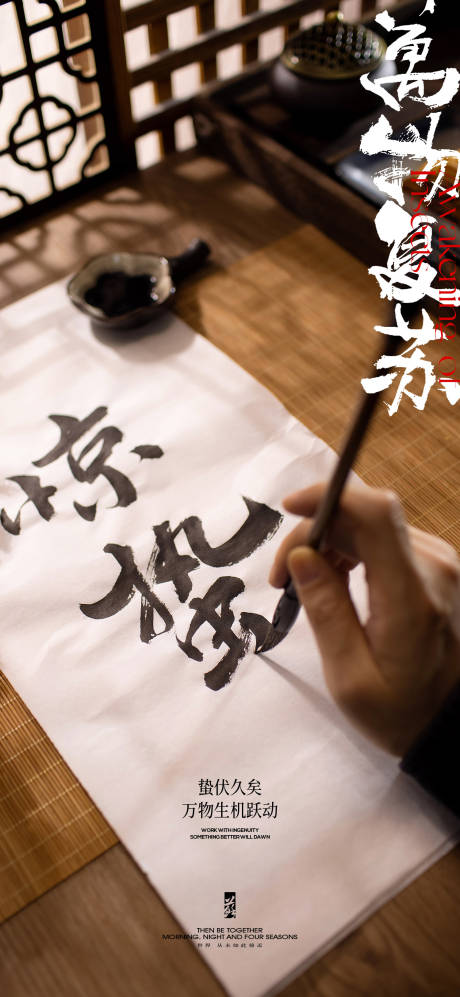 萬物复苏
Awakening of
惊蛰
蛰伏久矣
万物生机跃动
WORK WITH INGENUITY
SOMETHING BETTER WILL DAWN
THEN BE TOGETHER
MORNING, NIGHT AND FOUR SEASONS